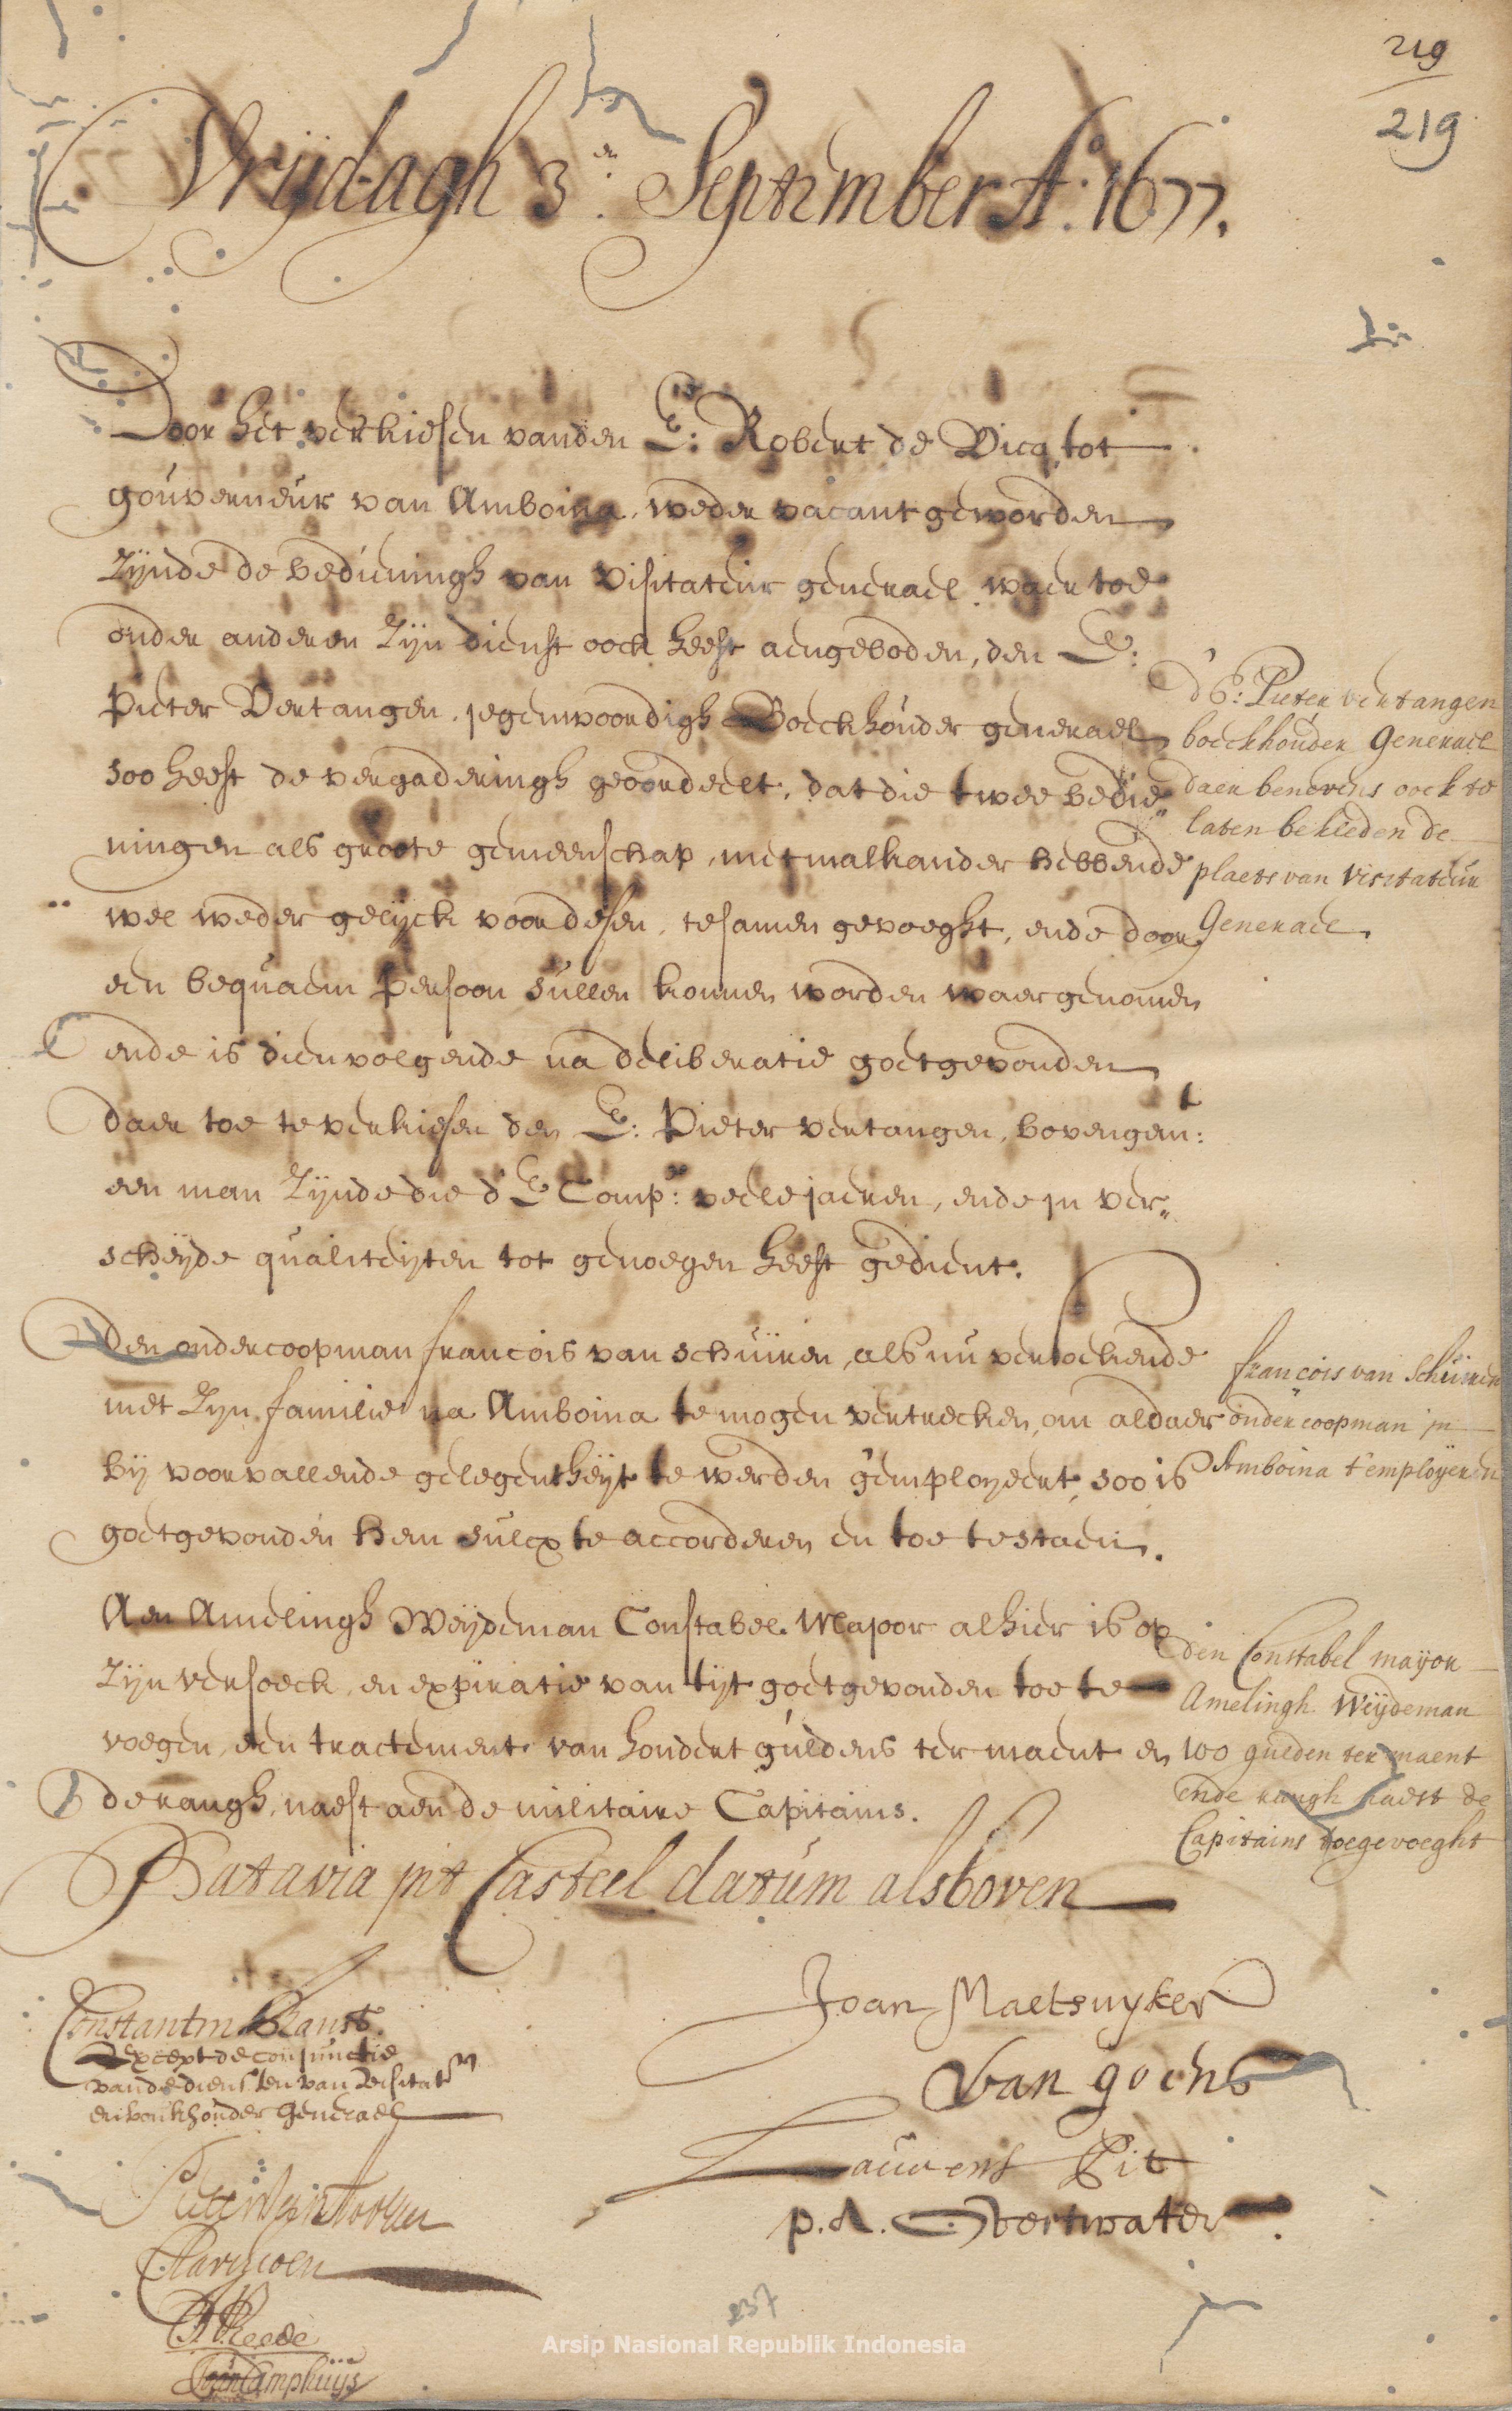 219
219
Vrijdagh 3:en September A:o 1677.
Door het verkiesen vanden E: Robert de Vicq tot
gouverneur van Amboina, weder vacant geworden
zijnde de bedieningh van visitateur generael, waer toe
onder anderen zijn dienst oock heeft aengeboden, den E:
Pieter Vertangen, jegenwoordigh Boeckhouder generael,
soo heeft de vergaderingh geoordeelt, dat die twee bedie„
ningen als groote gemeenschap, met malkander hebbende
wel weder gelijck voor desen, tesamen gevoeght, ende door
een bequaem persoon sullen konnen worden waergenomen
ende is dien volgende na deliberatie goetgevonden
daer toe te verkiesen den E: Pieter vertangen, bovengem:t
een man zijnde die d' E Comp:e veele jaeren, ende in ver„
scheijde qualiteijten tot genoegen heeft gedient.
d' E: Pieter vertangen
boeckhouder Generael
daer benevens oock te
laten bekleden de
plaets van Visitateur
Generael.
Den ondercoopman francois van schuiren, als nu versoekende
met zijn familie na Amboina te mogen vertrecken, om aldaer
bij voorvallende gelegentheijt te werden geemployeert, soo is
goetgevonden hem sulcx te accorderen en toe te staen.
françois van Schuiren
ondercoopman in
Amboina t'employeren
Aen Amelingh Weijdeman Constabel Major alhier is op
zijn versoeck, en expiratie van tijt goetgevonden toe te
voegen, een tractement van hondert guldens ter maent en
de rangh, naest aen de militaire Capitains.
den Constabel mayor
Amelingh Weijdeman
100 gulden ter maent
ende rangh naest de
Capitains toegevoeght
Batavia int Casteel datum alsboven
Joan Maetsuyker
Van Goens
Laurens Pit
p. A. Overtwater
Constantin Ranst.
Except de conjunctie
van de diensten van visitatr
en boukhouder Generael
A V Reede
Joan Camphuijs
237
Arsip Nasional Republik Indonesia